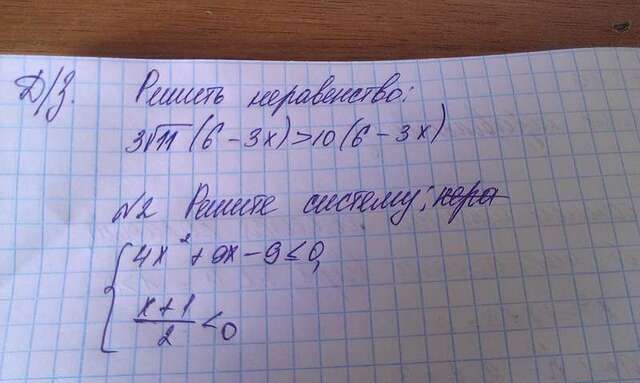 Д/з. Решить неравенство:
3√11 (6 - 3x) > 10 (6 - 3x)
№2 Решите систему;
{ 4x² + 9x - 9 ≤ 0,
x + 1 / 2 < 0